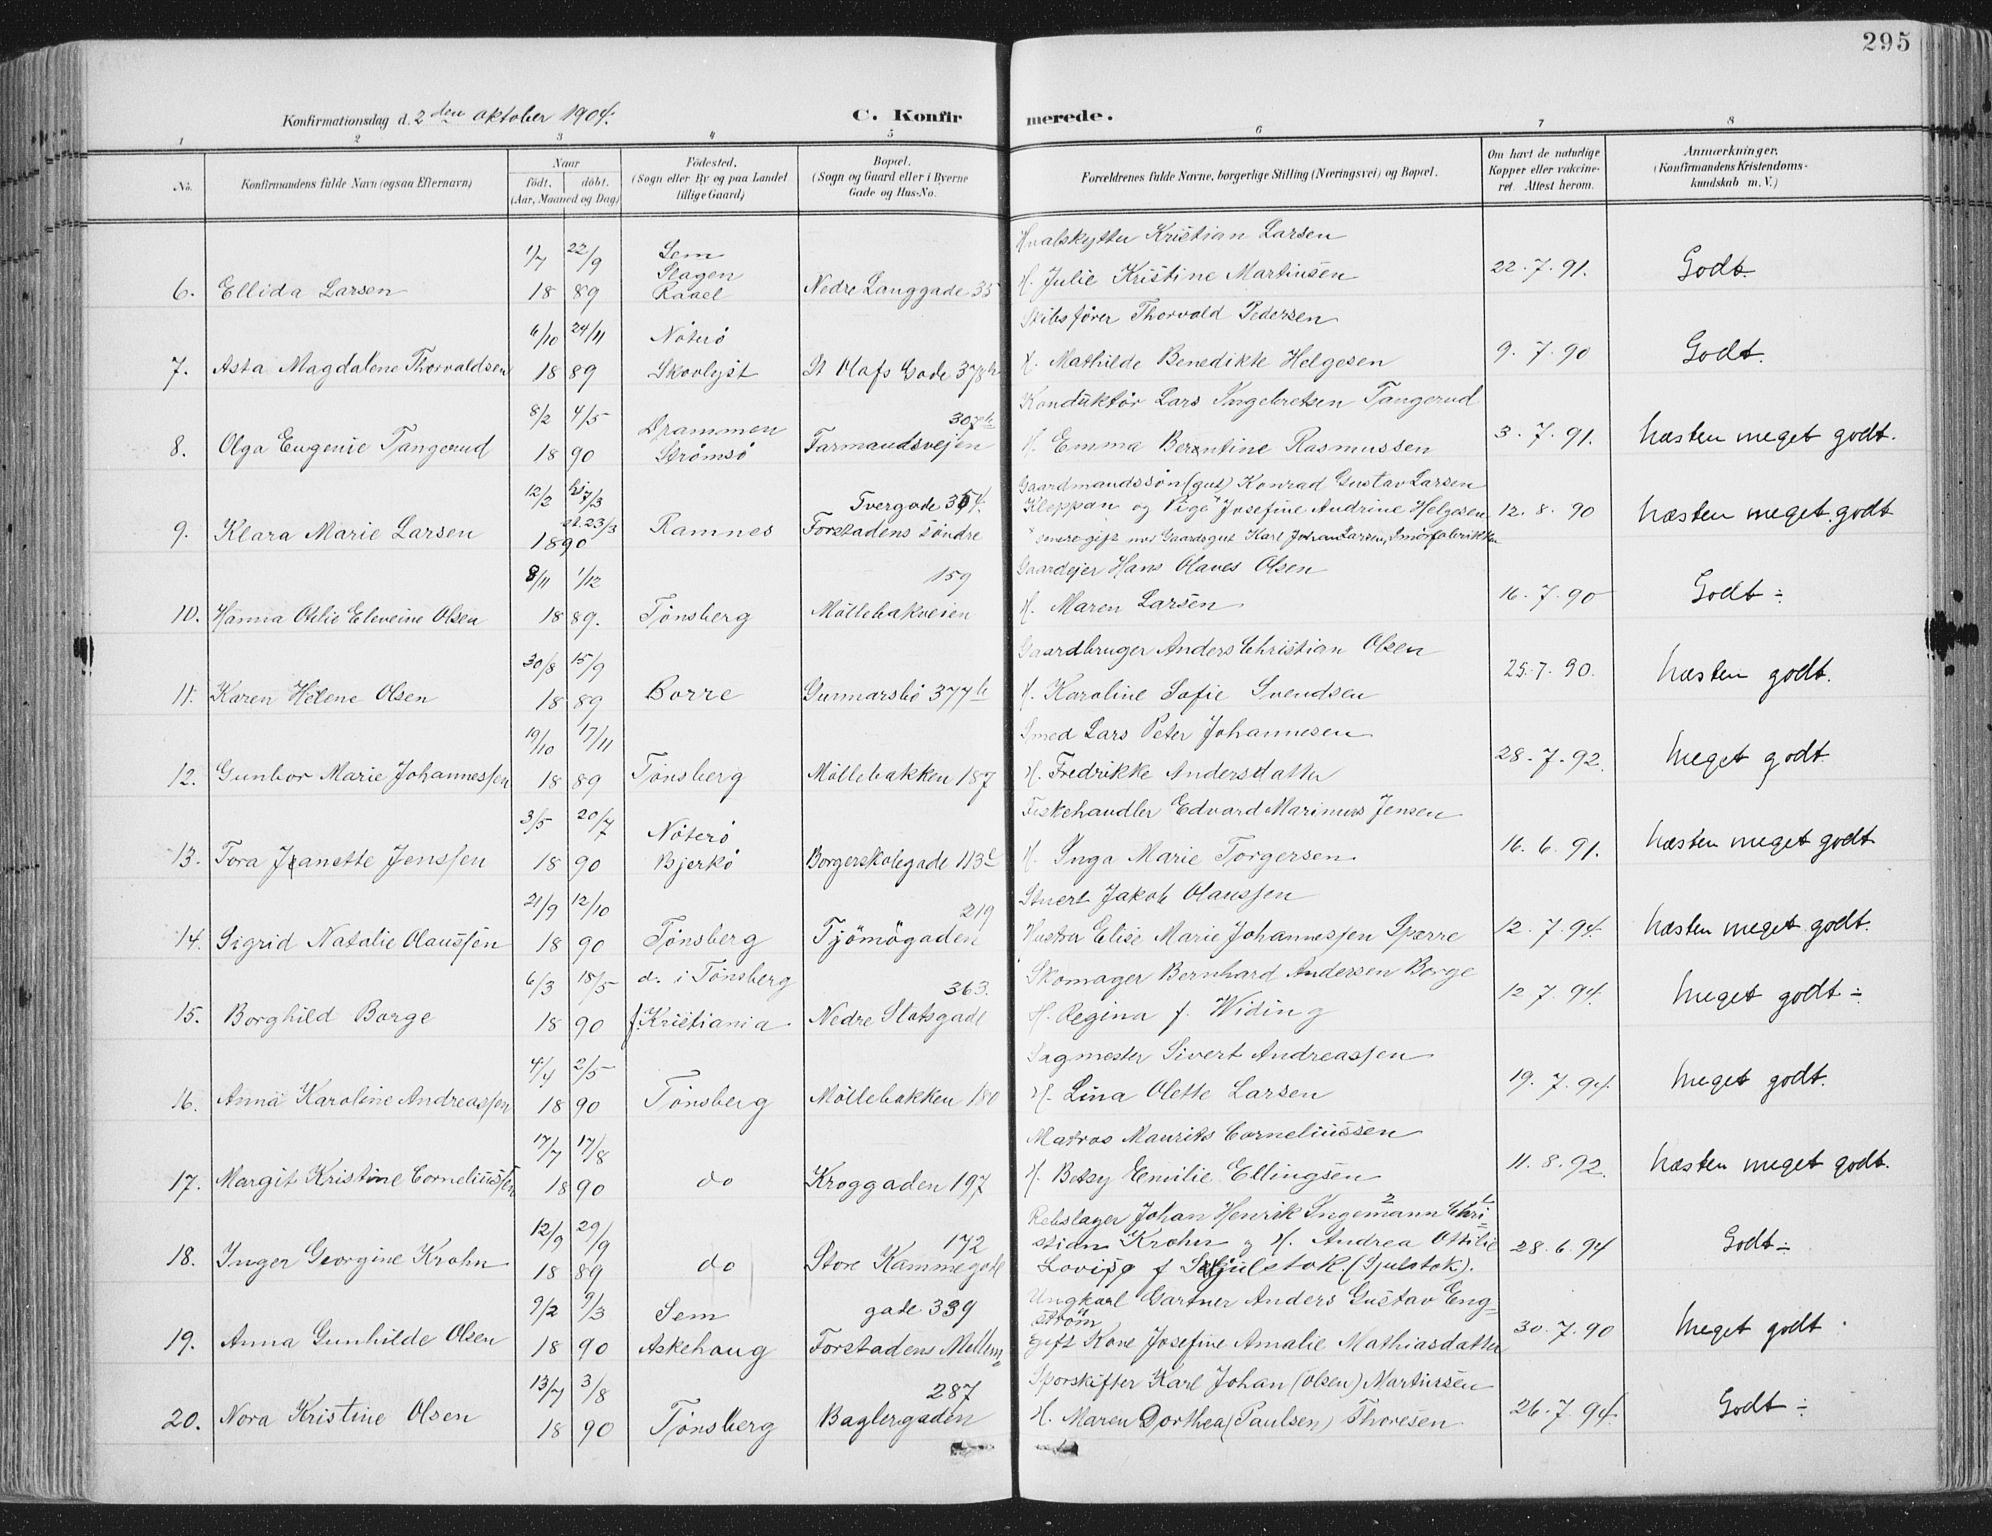 295
Konfirmationsdag d. 2den oktober 1904. C. Konfirmerede.
1 2 3 4 5 6 7 8
No. Konfirmandens fulde Navn (ogsaa Efternavn) Naar født, døbt. (Aar, Maaned og Dag) Fødested. (Sogn eller By og paa Landet tillige Gaard) Bopæl. (Sogn og Gaard eller i Byerne Gade og Hus-No. Forældrenes fulde Navne, borgerlige Stilling (Næringsvei) og Bopæl. Om havt de naturlige Kopper eller vaccineret. Attest herom. Anmærkninger. (Konfirmandens Kristendomskundskab m. V.)
Hvalskytter Kristian Larsen
1/7 22/9 Sem
Slagen H. Julie Kristine Martinsen 22.7.91. Godt
6. Ellida Larsen 18 89 Raael Nedre Langgade 35
Skibsfører Thorvald Pedersen
6/10 24/11 Nøterø
7. Asta Magdalene Thorvaldsen 18 89 Skovlyst St Olafs Gade 378b H. Mathilde Benedikte Helgesen 9.7.90 Godt.
Konduktør Lars Ingebretsen Tangerud
8/2 4/5 Drammen 307b
8. Olga Eugenie Tangerud 18 90 Strømsø Farmandsvejen H. Emma Berentine Rasmussen 3.7.91. Næsten meget godt.
Gaardmandssøn (gut) Konrad Gustav Larsen
12/2 hj 7/3 Tvergade 354. Kleppan og Pige Josefine Andrine Helgesen 12.8.90 Næsten meget godt
9. Klara Marie Larsen 18 90 st. 23/3 Ramnes Forstadens søndre senere gift med Gaardsgut Karl Johan Larsen, Smørfabrikken
Gaardejer Hans Olaves Olsen
8/11 1/12 159
10. Hanna Otilie Eleveine Olsen 18 89. Tønsberg Møllebakveien H. Maren Larsen 16.7.90 Godt ÷
Gaardbruger Anders Christian Olsen
30/8 15/9
11. Karen Helene Olsen 18 89 Borre Gunnarsbø 377b H. Karoline Sofie Svendsen 25.7.90. Næsten godt.
Smed Lars Peter Johannesen
19/10 17/11
12. Gunbor Marie Johannessen 18 89 Tønsberg Møllebakken 187 H. Fredrikke Andersdatter 28.7.92. Meget godt
Fiskehandler Edvard Marinius Jensen
3/5 20/7 Nøterø
13. Tora Jeanette Jenssen 18 90 Bjerkø Borgerskolegade 113c H. Inga Marie Torgersen 16.6.91. Næsten meget godt
Stuert Jakob Olaussen
21/9 12/10 219
14. Sigrid Natalie Olaussen 18 90 Tønsberg Tjømøgaden Hustru Elise Marie Johannessen Sparre 12.7.94. Næsten meget godt.
6/3 18/5 d. i Tønsberg 363. Skomager Bernhard Andersen Borge
15. Borghild Borge 18 90 f. Kristiania Nedre Slotsgade H. Regina f. Widing 12 7.94. Meget godt ÷
Sagmester Sivert Andreassen
4/4 2/5
16. Anna Karoline Andreassen 18 90 Tønsberg Møllebakken 180 H. Lina Olette Larsen 19.7.94. Meget godt.
Matros Maurits Corneliussen
17/7 17/8
17. Margit Kristine Corneliussen 18 90 do Kroggaden 197 H. Betsy Emilie Ellingsen 11.8.92. Næsten meget godt.
Rebslager Johan Henrik Ingemann 2 Chri= 1
12/9 29/9 172 stian Krohn og H. Andrea Ottilie
18. Inger Georgine Krohn 18 89 do Store Kammegade Lovise f Sjulstok. (Sjulstok). 28.6.94 Godt ÷
Ungkarl Gartner Anders Gustav Eng=
9/2 9/3 Sem gade 339 strøm
19. Anna Gunhilde Olsen 18 90 Askehaug Forstadens Mellem= gift Kone Josefine Amalie Mathiasdatter 30.7.90 Meget godt.
13/7 3/8 287 Sporskifter Karl Johan (Olsen) Martinsen
20. Nora Kristine Olsen 18 90 Tønsberg Baglergaden H. Maren Dorthea (Paulsen) Thoresen 26.7.94. Godt ÷